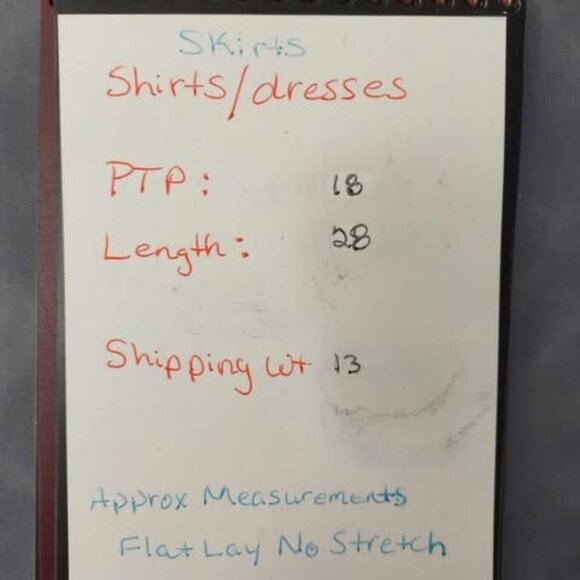 Skirts
Shirts/dresses
PTP: 18
Length: 28
Shipping wt 13
Approx Measurements
Flat Lay No Stretch